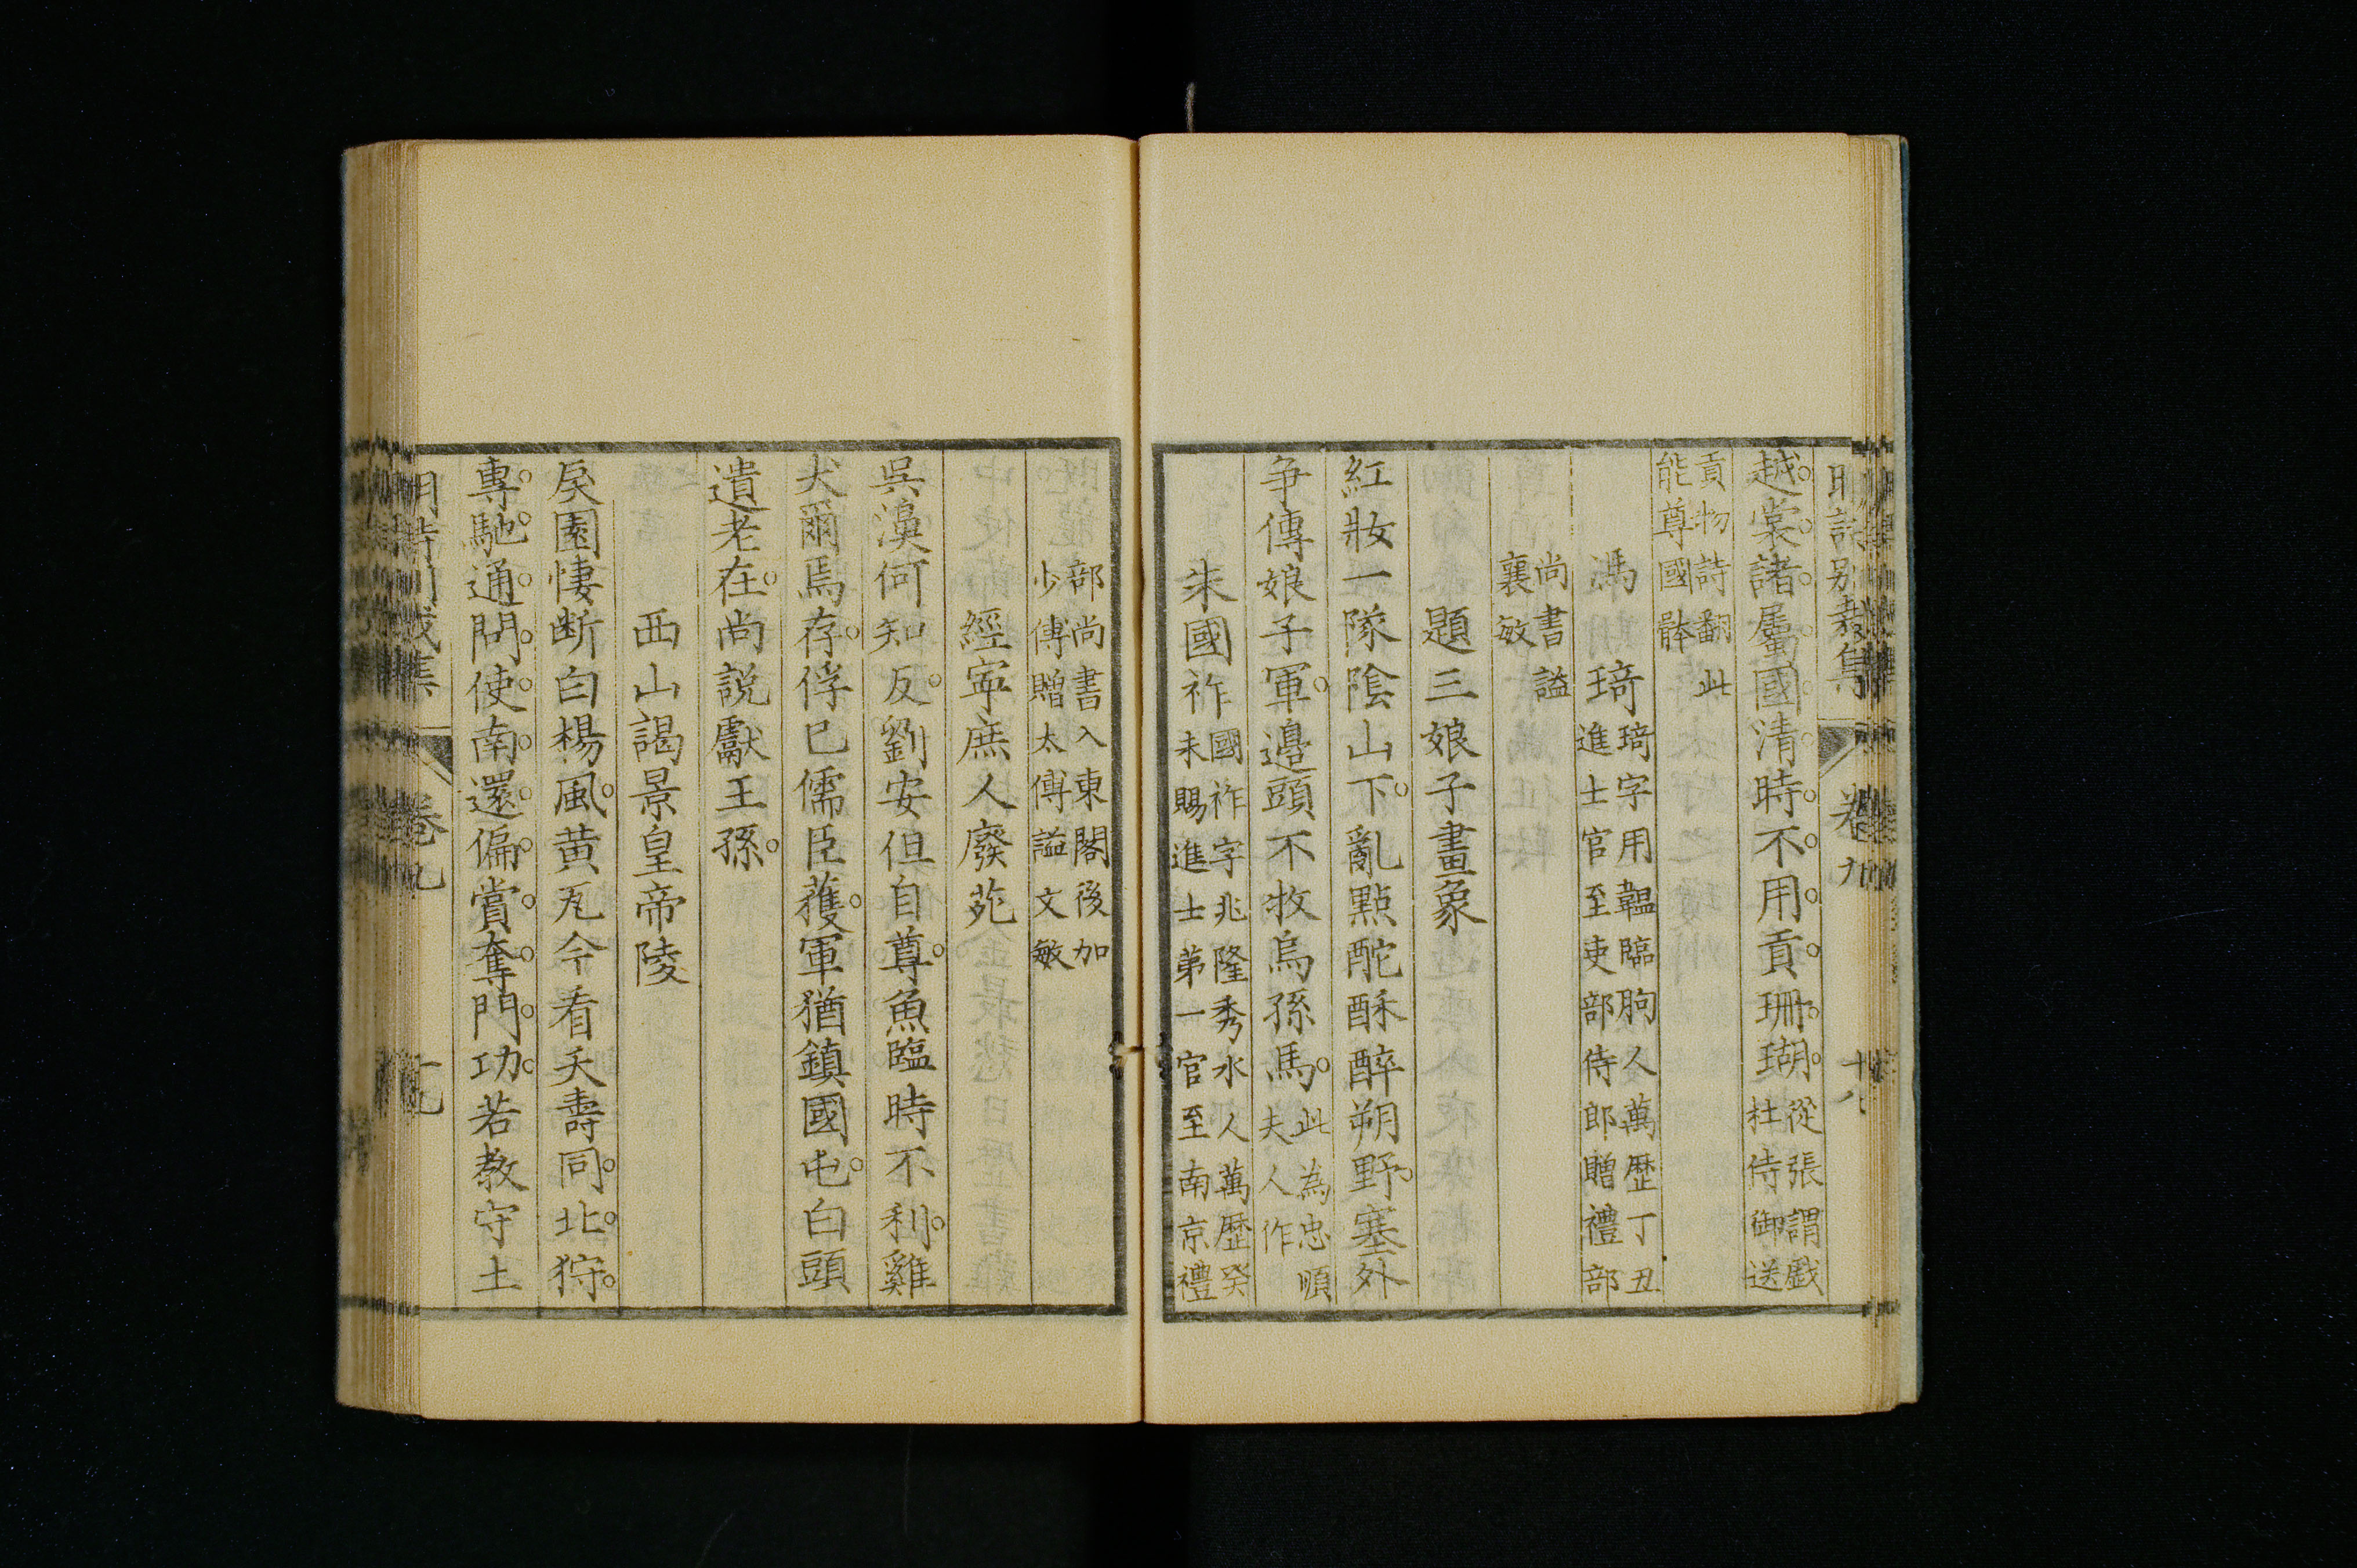 明詩別裁集 卷九 十八
越裳諸屬國清時不用貢珊瑚從張謂戲杜侍御送
貢物詩翻此能尊國體
馮琦琦字用韞臨朐人萬歷丁丑進士官至吏部侍郎贈禮部
尚書謚襄敏
題三娘子畫象
紅妝一隊陰山下亂點酡酥醉朔野塞外
爭傳娘子軍邊頭不牧烏孫馬此為忠順夫人作
朱國祚國祚字兆隆秀水人萬歷癸未賜進士第一官至南京禮
部尚書入東閣後加少傅贈太傅謚文敏
經寧庶人廢苑
吳濞何知反劉安但自尊魚臨時不利雞
犬爾焉存俘已儒臣蒦軍猶鎮國屯白頭
遺老在尚説獻王孫
西山謁景皇帝陵
戾園悽斷白楊風黃瓦今看夭壽同北狩
專馳通問使南還偏賞奪門功若教守土
明詩別裁集 卷九 十九